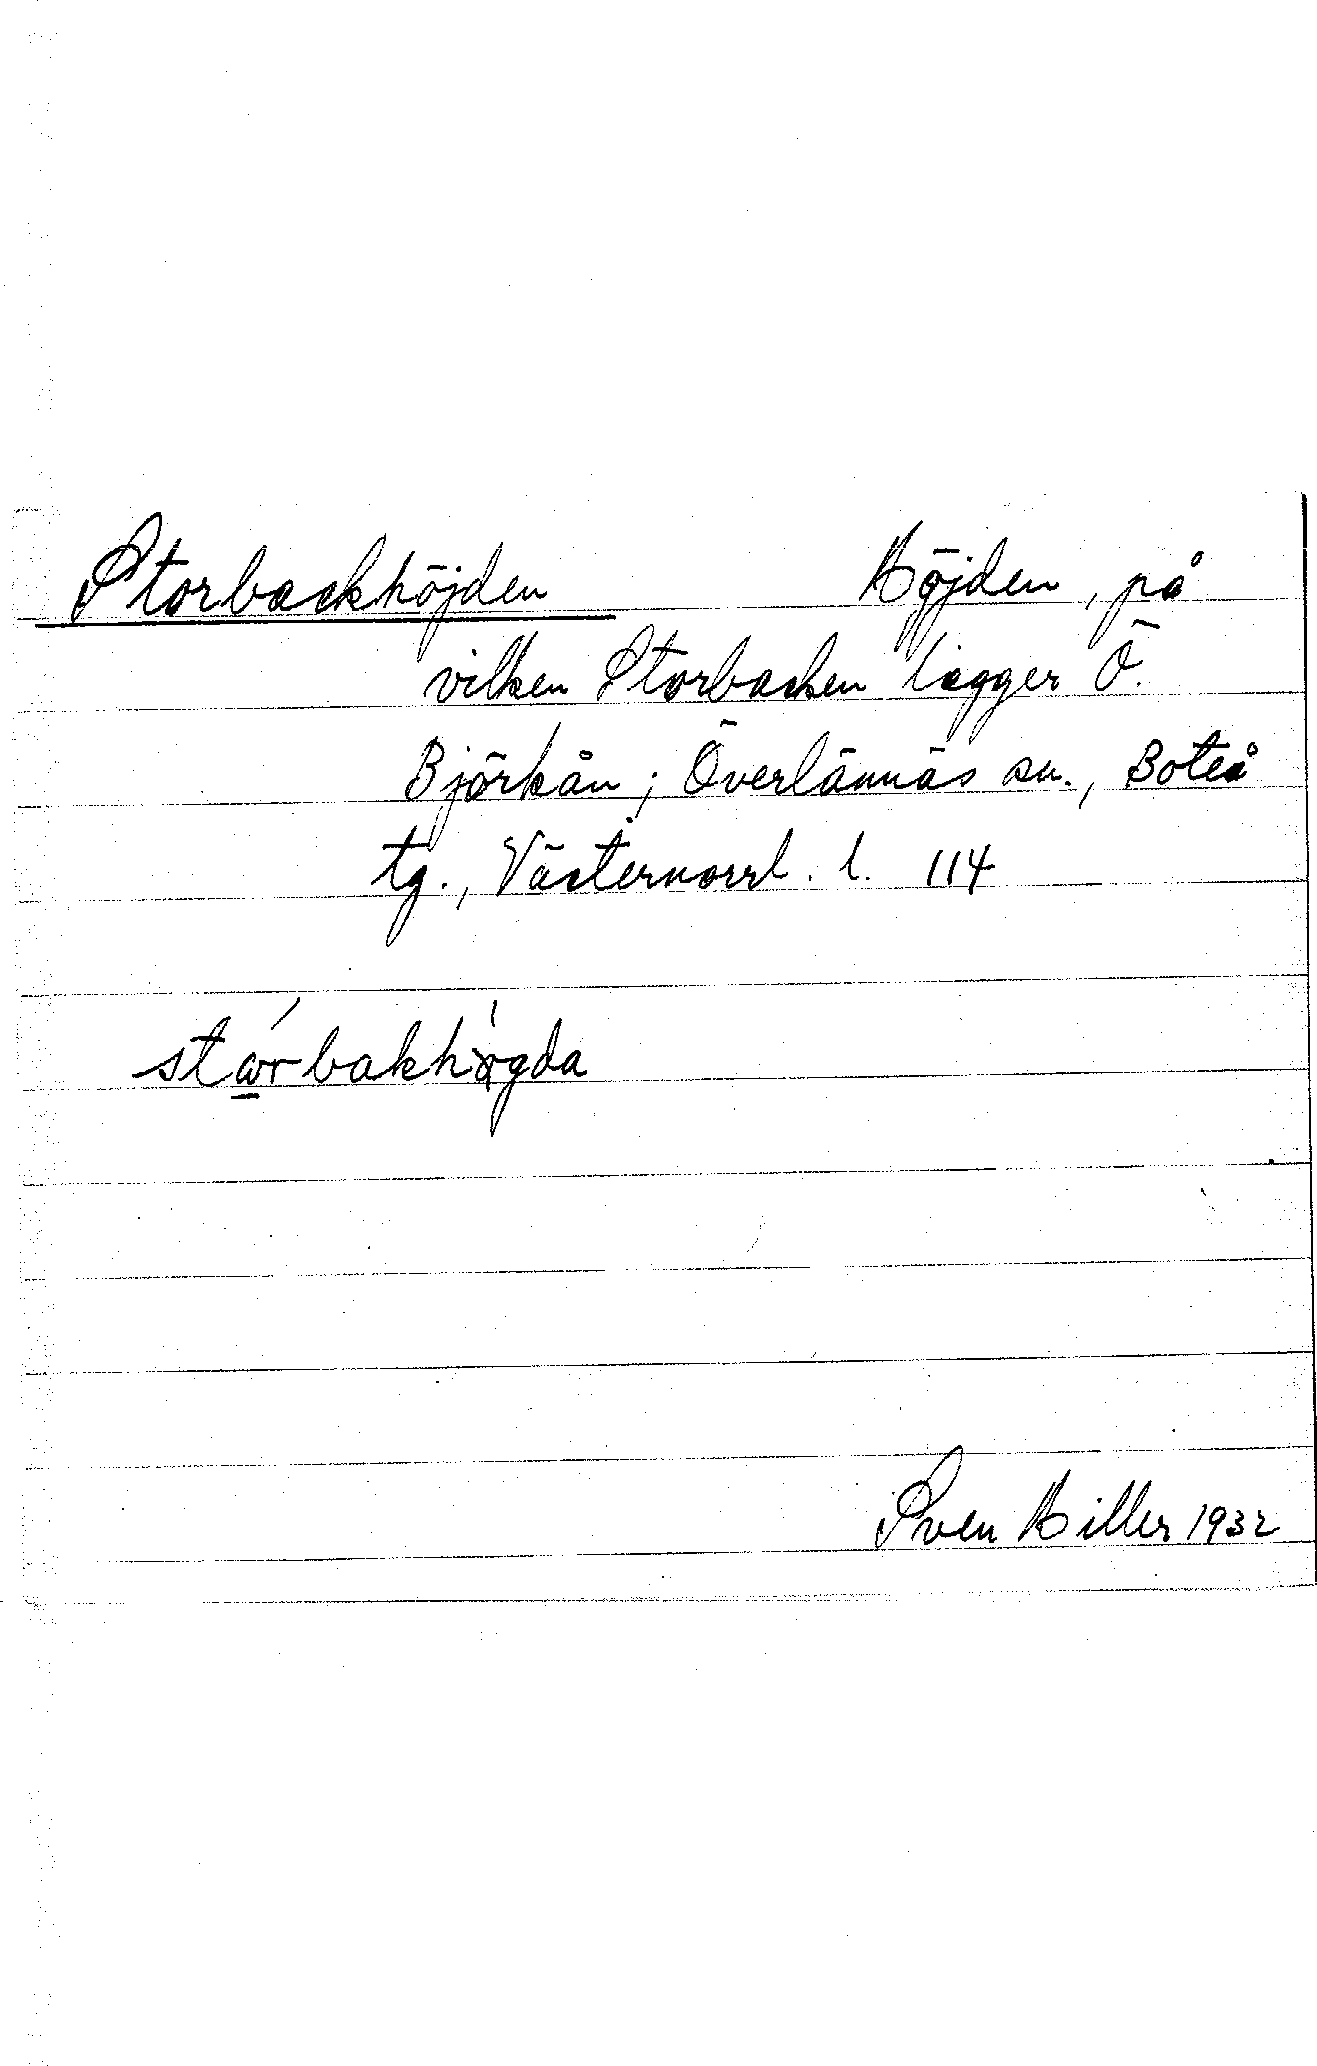 Storbackhöjden Höjden, på
vilken Storbacken ligger Ö.
Björkån; Överlännäs sn., Boteå
tg., Västernorrl. l. 114
stɷ́rbakhø̀gda
Sven Hiller 1932